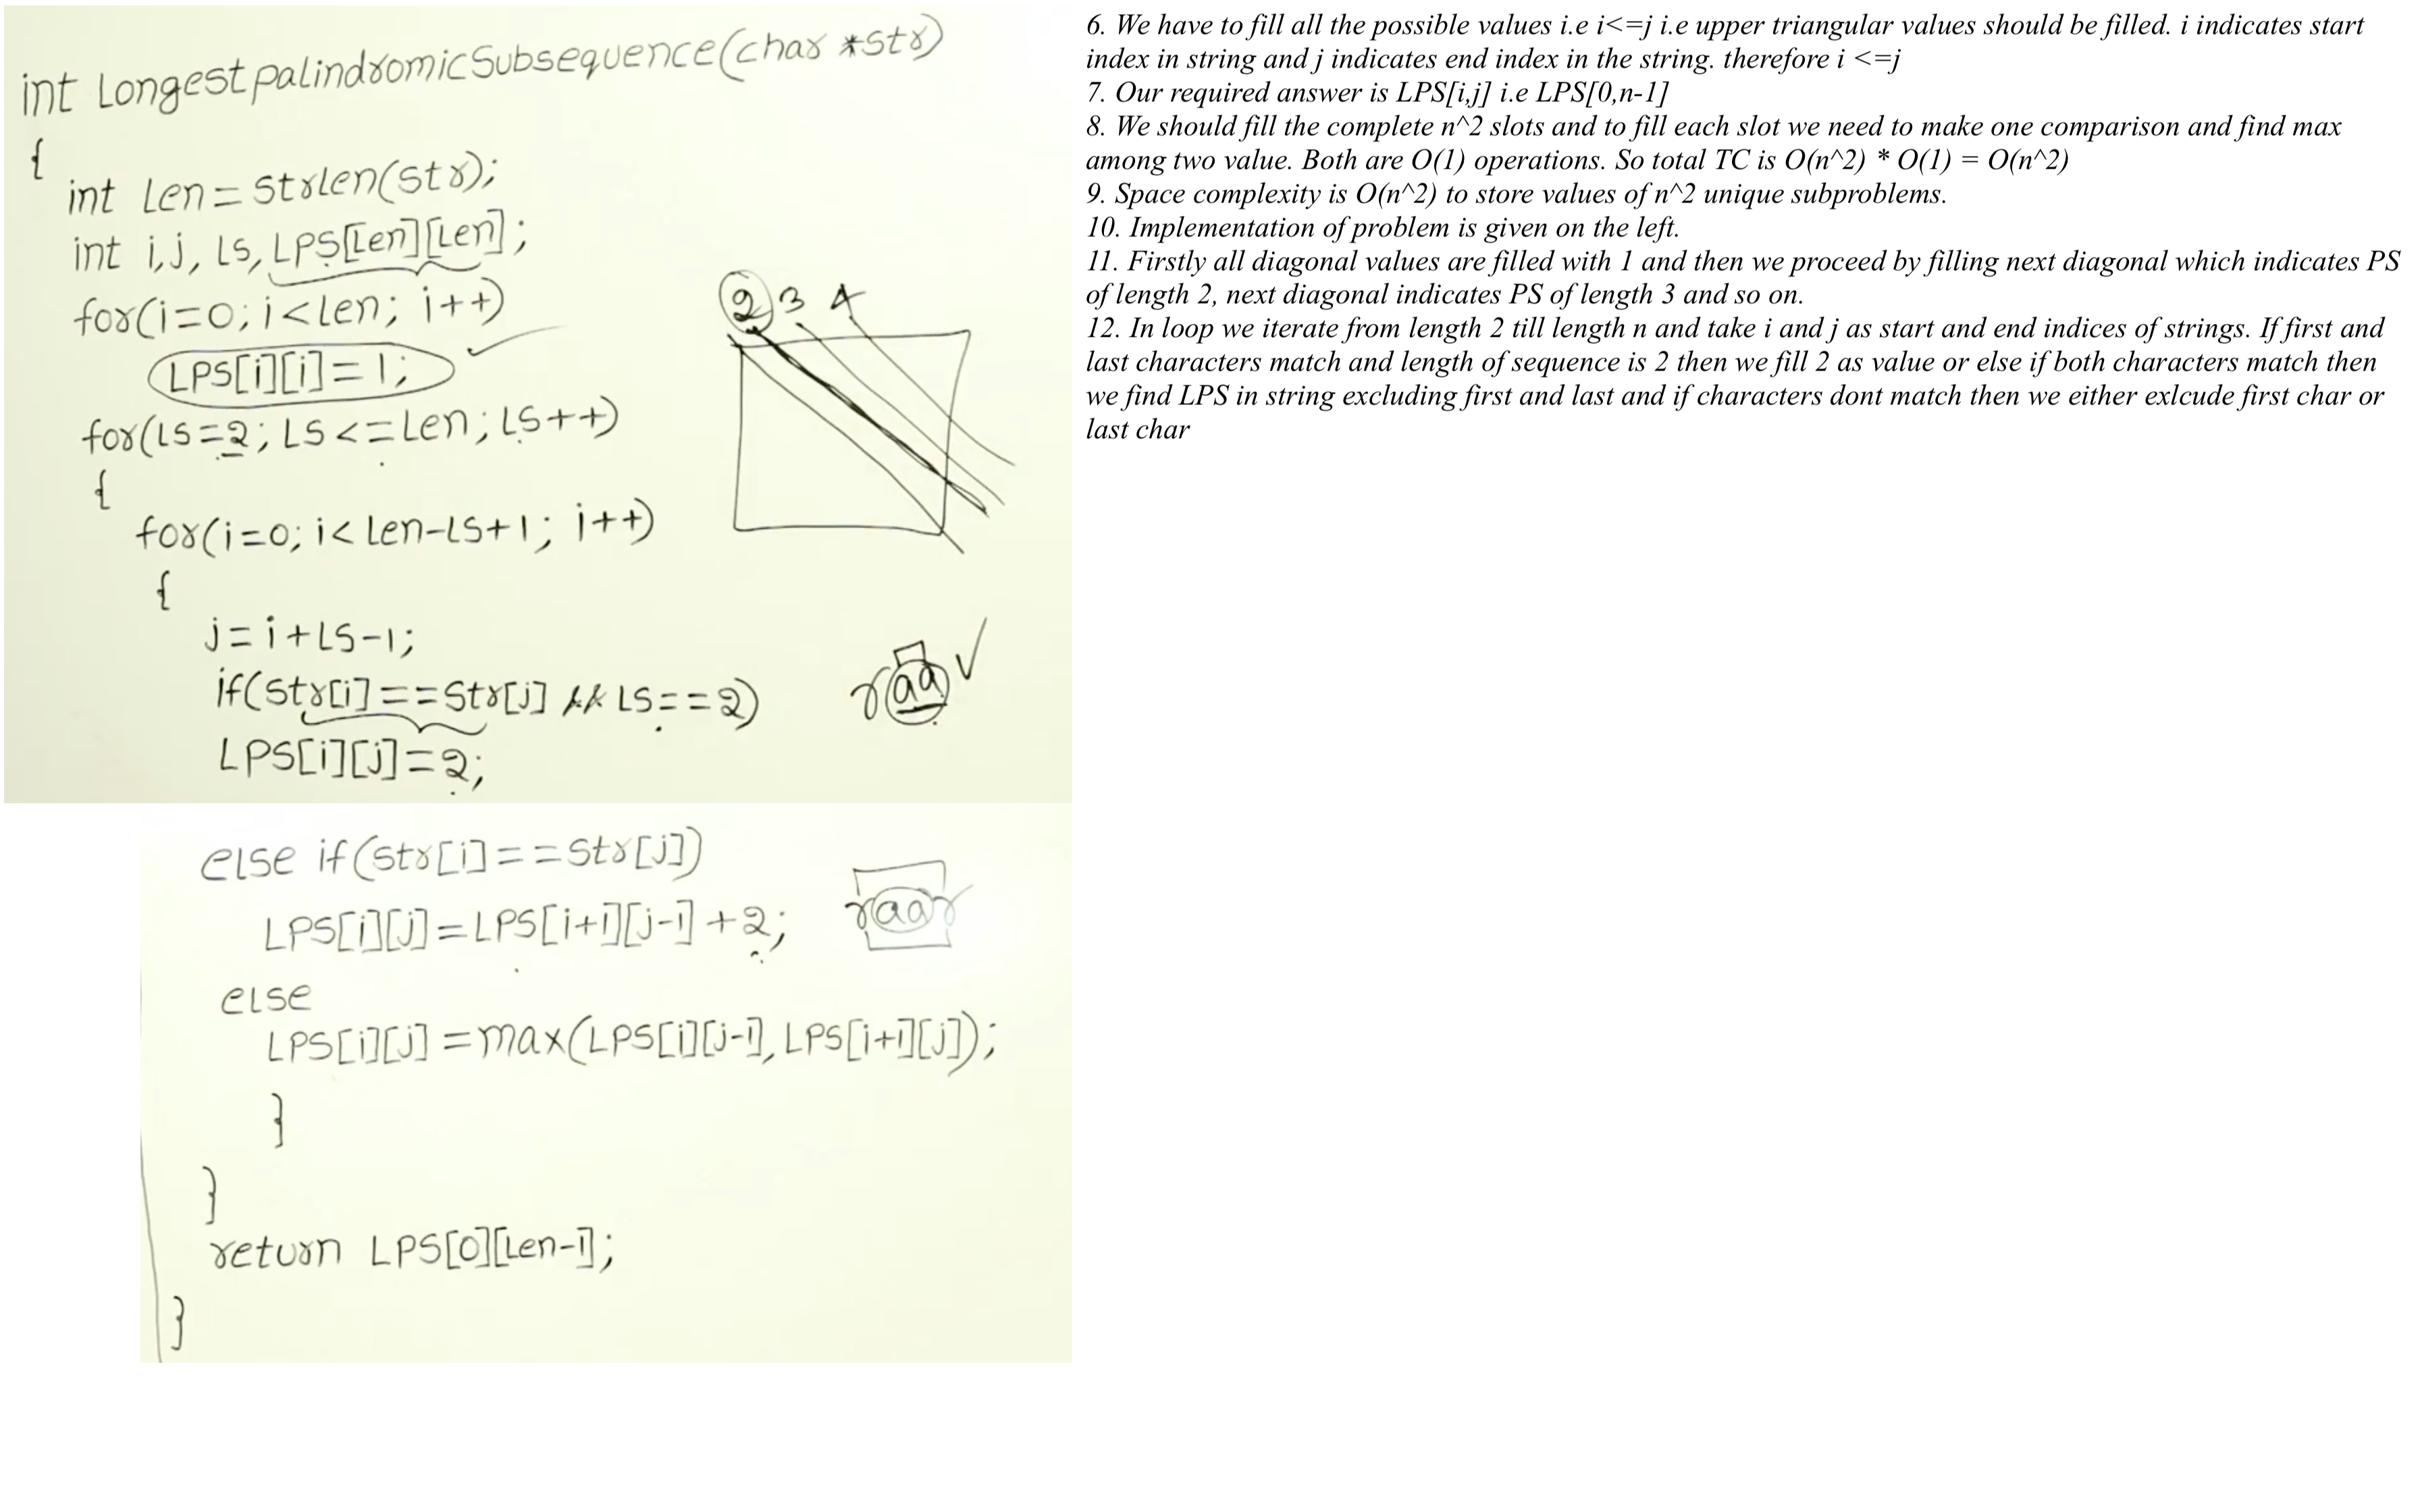 int LongestpalindromicSubsequence(char *str)
{
int Len=strlen(str);
int i,j, LS, LPS[Len][Len];
for(i=0; i<Len; i++)
LPS[i][i]=1;
for(LS=2; LS<=Len; LS++)
{
for(i=0; i<Len-LS+1; i++)
{
j=i+LS-1;
if(Str[i]==Str[j] && LS==2)
LPS[i][j]=2;
2 3 4
raa
else if(str[i]==str[j])
LPS[i][j]=LPS[i+1][j-1]+2;
raar
else
LPS[i][j]=max(LPS[i][j-1], LPS[i+1][j]);
}
}
return LPS[0][Len-1];
}
6. We have to fill all the possible values i.e i<=j i.e upper triangular values should be filled. i indicates start
index in string and j indicates end index in the string. therefore i <=j
7. Our required answer is LPS[i,j] i.e LPS[0,n-1]
8. We should fill the complete n^2 slots and to fill each slot we need to make one comparison and find max
among two value. Both are O(1) operations. So total TC is O(n^2) * O(1) = O(n^2)
9. Space complexity is O(n^2) to store values of n^2 unique subproblems.
10. Implementation of problem is given on the left.
11. Firstly all diagonal values are filled with 1 and then we proceed by filling next diagonal which indicates PS
of length 2, next diagonal indicates PS of length 3 and so on.
12. In loop we iterate from length 2 till length n and take i and j as start and end indices of strings. If first and
last characters match and length of sequence is 2 then we fill 2 as value or else if both characters match then
we find LPS in string excluding first and last and if characters dont match then we either exlcude first char or
last char